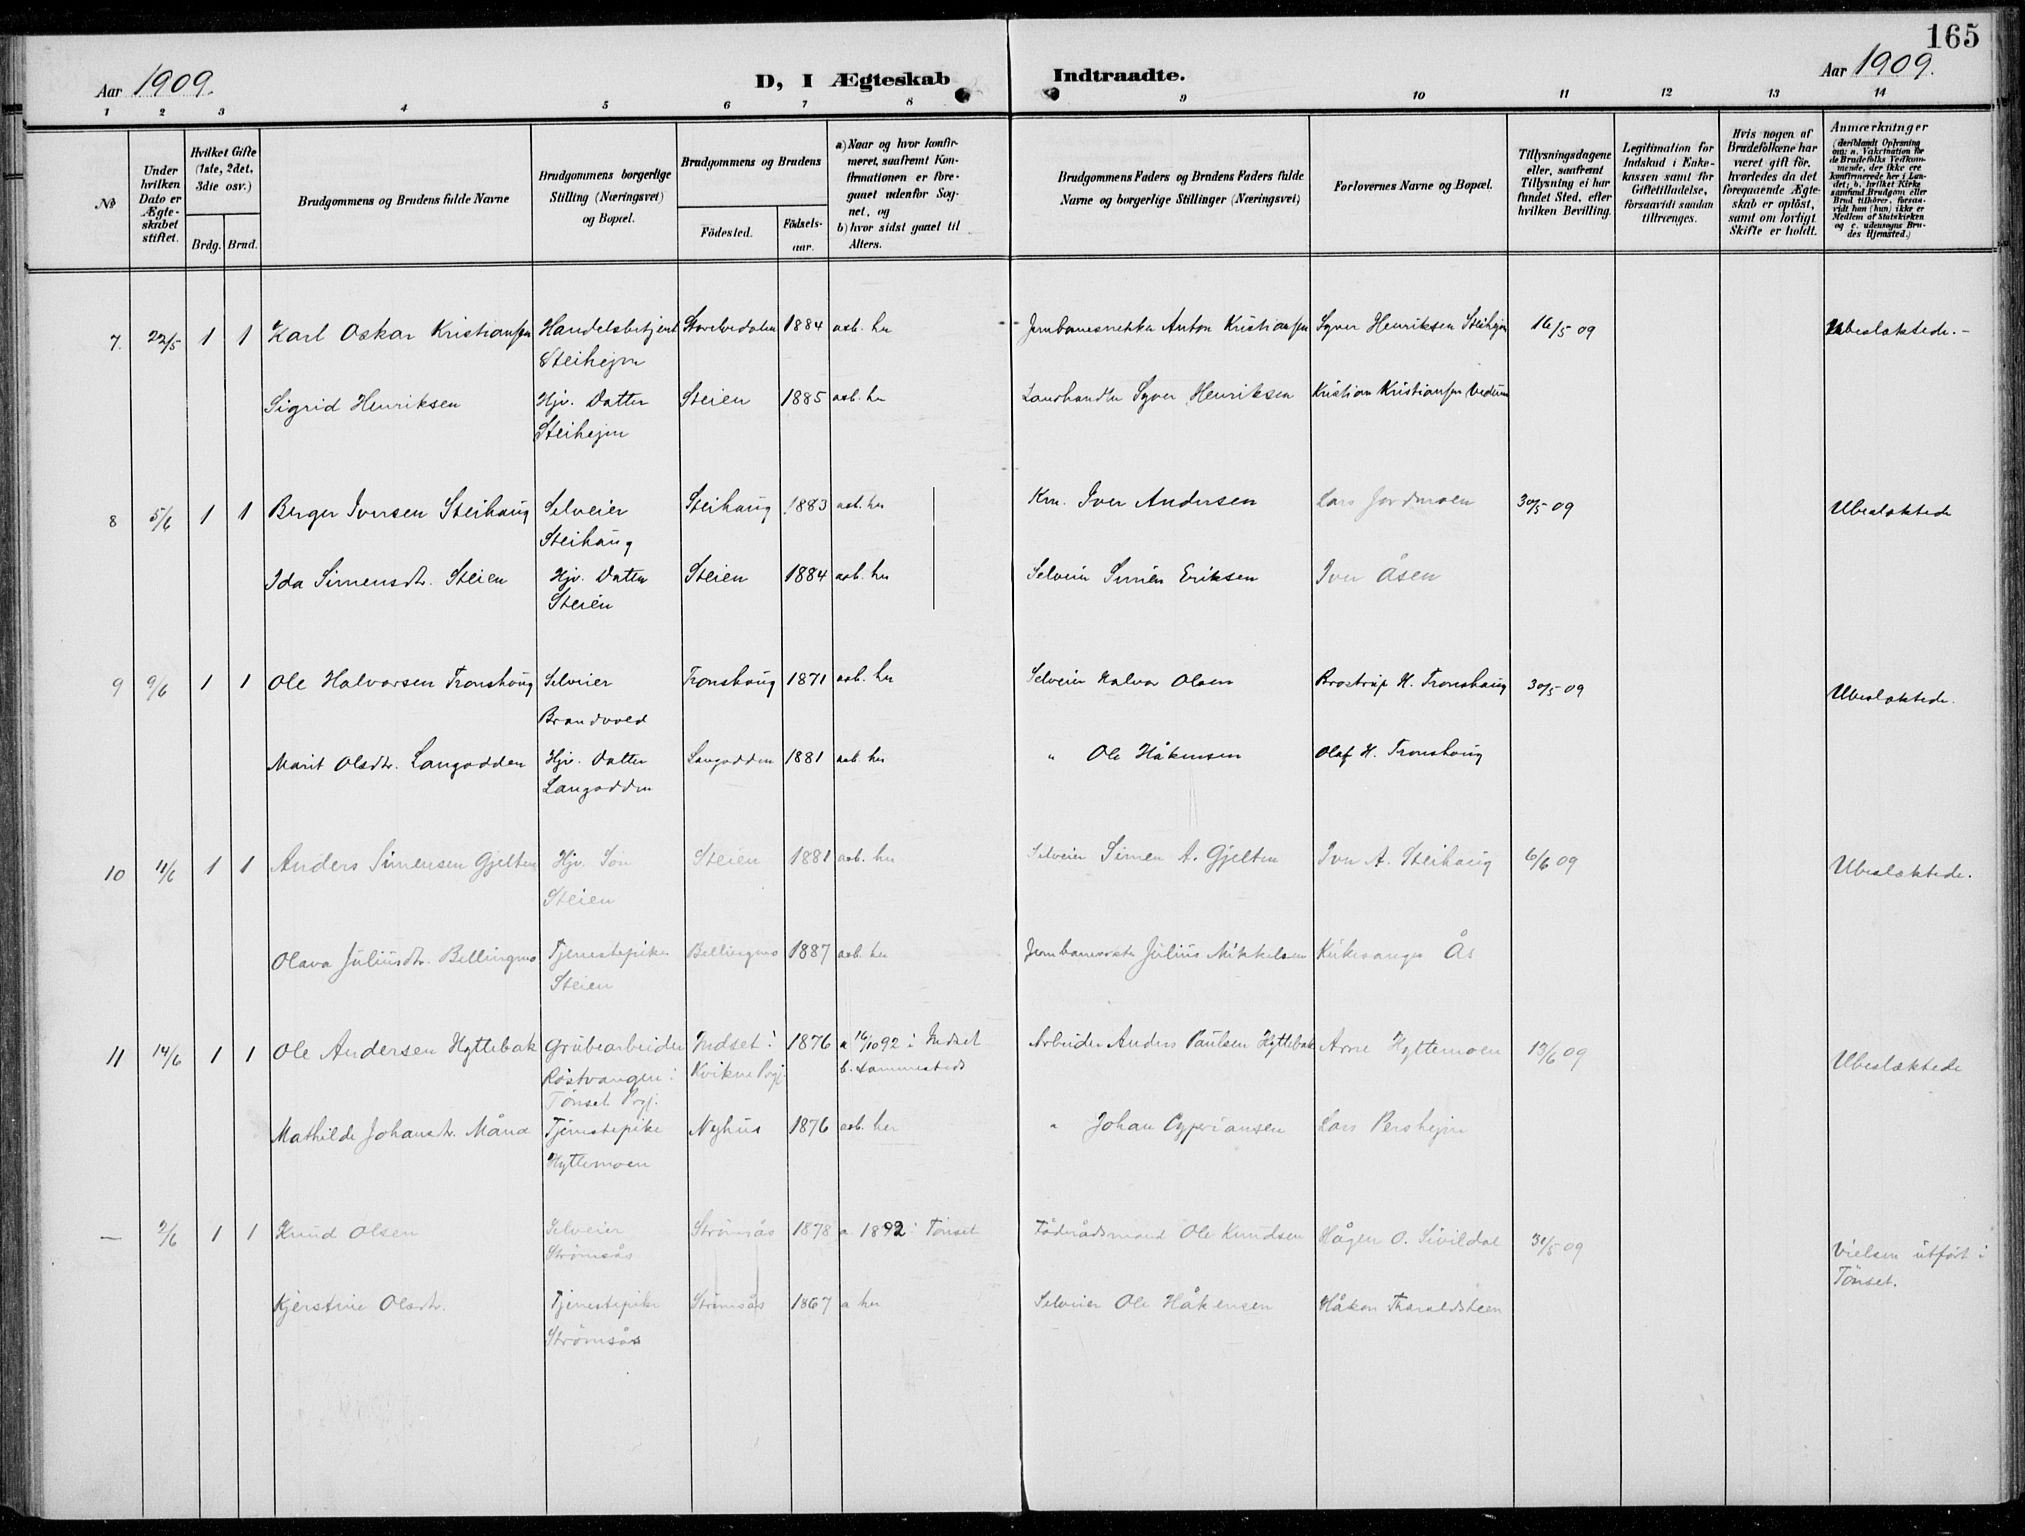 165
Aar 1909.
D, I Ægteskab Indtraadte.
Aar 1909.
1 2 3 4 5 6 7 8 9 10 11 12 13 14
No
Under hvilken Dato er Ægteskabet stiftet.
Hvilket Gifte (1ste, 2det, 3die osv.)
Brdg. Brud.
Brudgommens og Brudens fulde Navne
Brudgommens borgerlige Stilling (Næringsvei) og Bopæl.
Brudgommens og Brudens
Fødested.
Fødsels-aar.
a) Naar og hvor konfirmeret, saafremt Konfirmationen er foregaaet udenfor Sognet, og
b) hvor sidst gaaet til Alters.
Brudgommens Faders og Brudens Faders fulde Navne og borgerlige Stillinger (Næringsvei)
Forlovernes Navne og Bopæl.
Tillysningsdagene eller, saafremt Tillysning ei har fundet Sted, efter hvilken Bevilling.
Legitimation for Indskud i Enkekassen samt for Giftetilladelse, forsaavidt saadan tiltrænges.
Hvis nogen af Brudefolkene har været gift før, hvorledes da det foregaaende Ægteskab er opløst, samt om lovligt Skifte er holdt.
Anmærkninger
(deriblandt Oplysning om: a. Vakcination for de Brudefolks Vedkommende, der ikke ere konfirmerede her i Landet; b. hvilket Kirkesamfund Brudgom eller Brud tilhører, forsaavidt han (hun) ikke er Medlem af Statskirken og c. udensogns Brudes Hjemsted.)
7. 22/5 1 1 Karl Oskar Kristiansen Handelsbetjent 1884 aab. her Anton Kristiansen Syver Henriksen Steihejm 16/5 09 Ubeslæktede.-
Steihejm
Sigrid Henriksen Hjv. Datter Steien 1885 aab. her Landhandler Syver Henriksen Kristian Kristiansen
Steihejm
8 5/6 1 1 Berger Iversen Steihaug Selveier Steihaug 1883 aab. her Iver Andersen Lars Jordmoen 30/5 09 Ubeslæktede
Steihaug
Ida Simensdtr. Steien Hjv. Datter Steien 1884 aab. her Selveier Simen Eriksen Iver Åsen
Steien
9 9/6 1 1 Ole Halvorsen Tronshaug Selveier Tronshaug 1871 aab. her Selveier Halvor Olsen Brostrup H. Tronshaug 30/5 09 Ubeslæktede.
Brandvold
Marit Olsdtr. Langodden Hjv. Datter Langodden 1881 aab. her " Ole Håkensen Olaf H. Tronshaug
Langodden
10 11/6 1 1 Anders Simensen Gjelten Hjv. Søn Steien 1881 aab. her Selveier Simen A. Gjelten Iver A. Steihaug 6/6 09 Ubeslæktede.
Steien
Olava Juliusdtr. Bellingmo Tjenestepike Bellingmo 1887 aab. her Julius Mikkelsen Kirkesanger Ås
Steien
11 14/6 1 1 Ole Andersen Hyttebak Grubearbeider Indset i 1876 a 16/10 92 i Indset Arbeider Anders Paulsen Hyttebak Arne Hyttemoen 13/6 09 Ubeslæktede
Røstvangen i Kvikne Prgj. b. sammesteds
Tønset Prgj.
Mathilde Johansdtr. Måna Tjenestepike Nyhus 1876 aab. her " Johan Cyperiansen Lars Pershejm
Hyttemoen
— 2/6 1 1 Knud Olsen Selveier Strømsås 1878 a 1892 i Tønset Føderådsmand Ole Knudsen Hågen O. Sivildal 31/5 09 Vielsen utført i
Strømsås Tønset.
Kjerstine Olsdtr. Tjenestepike Strømsås 1867 a her Selveier Ole Håkensen Håken Tharaldsteen
Strømsås